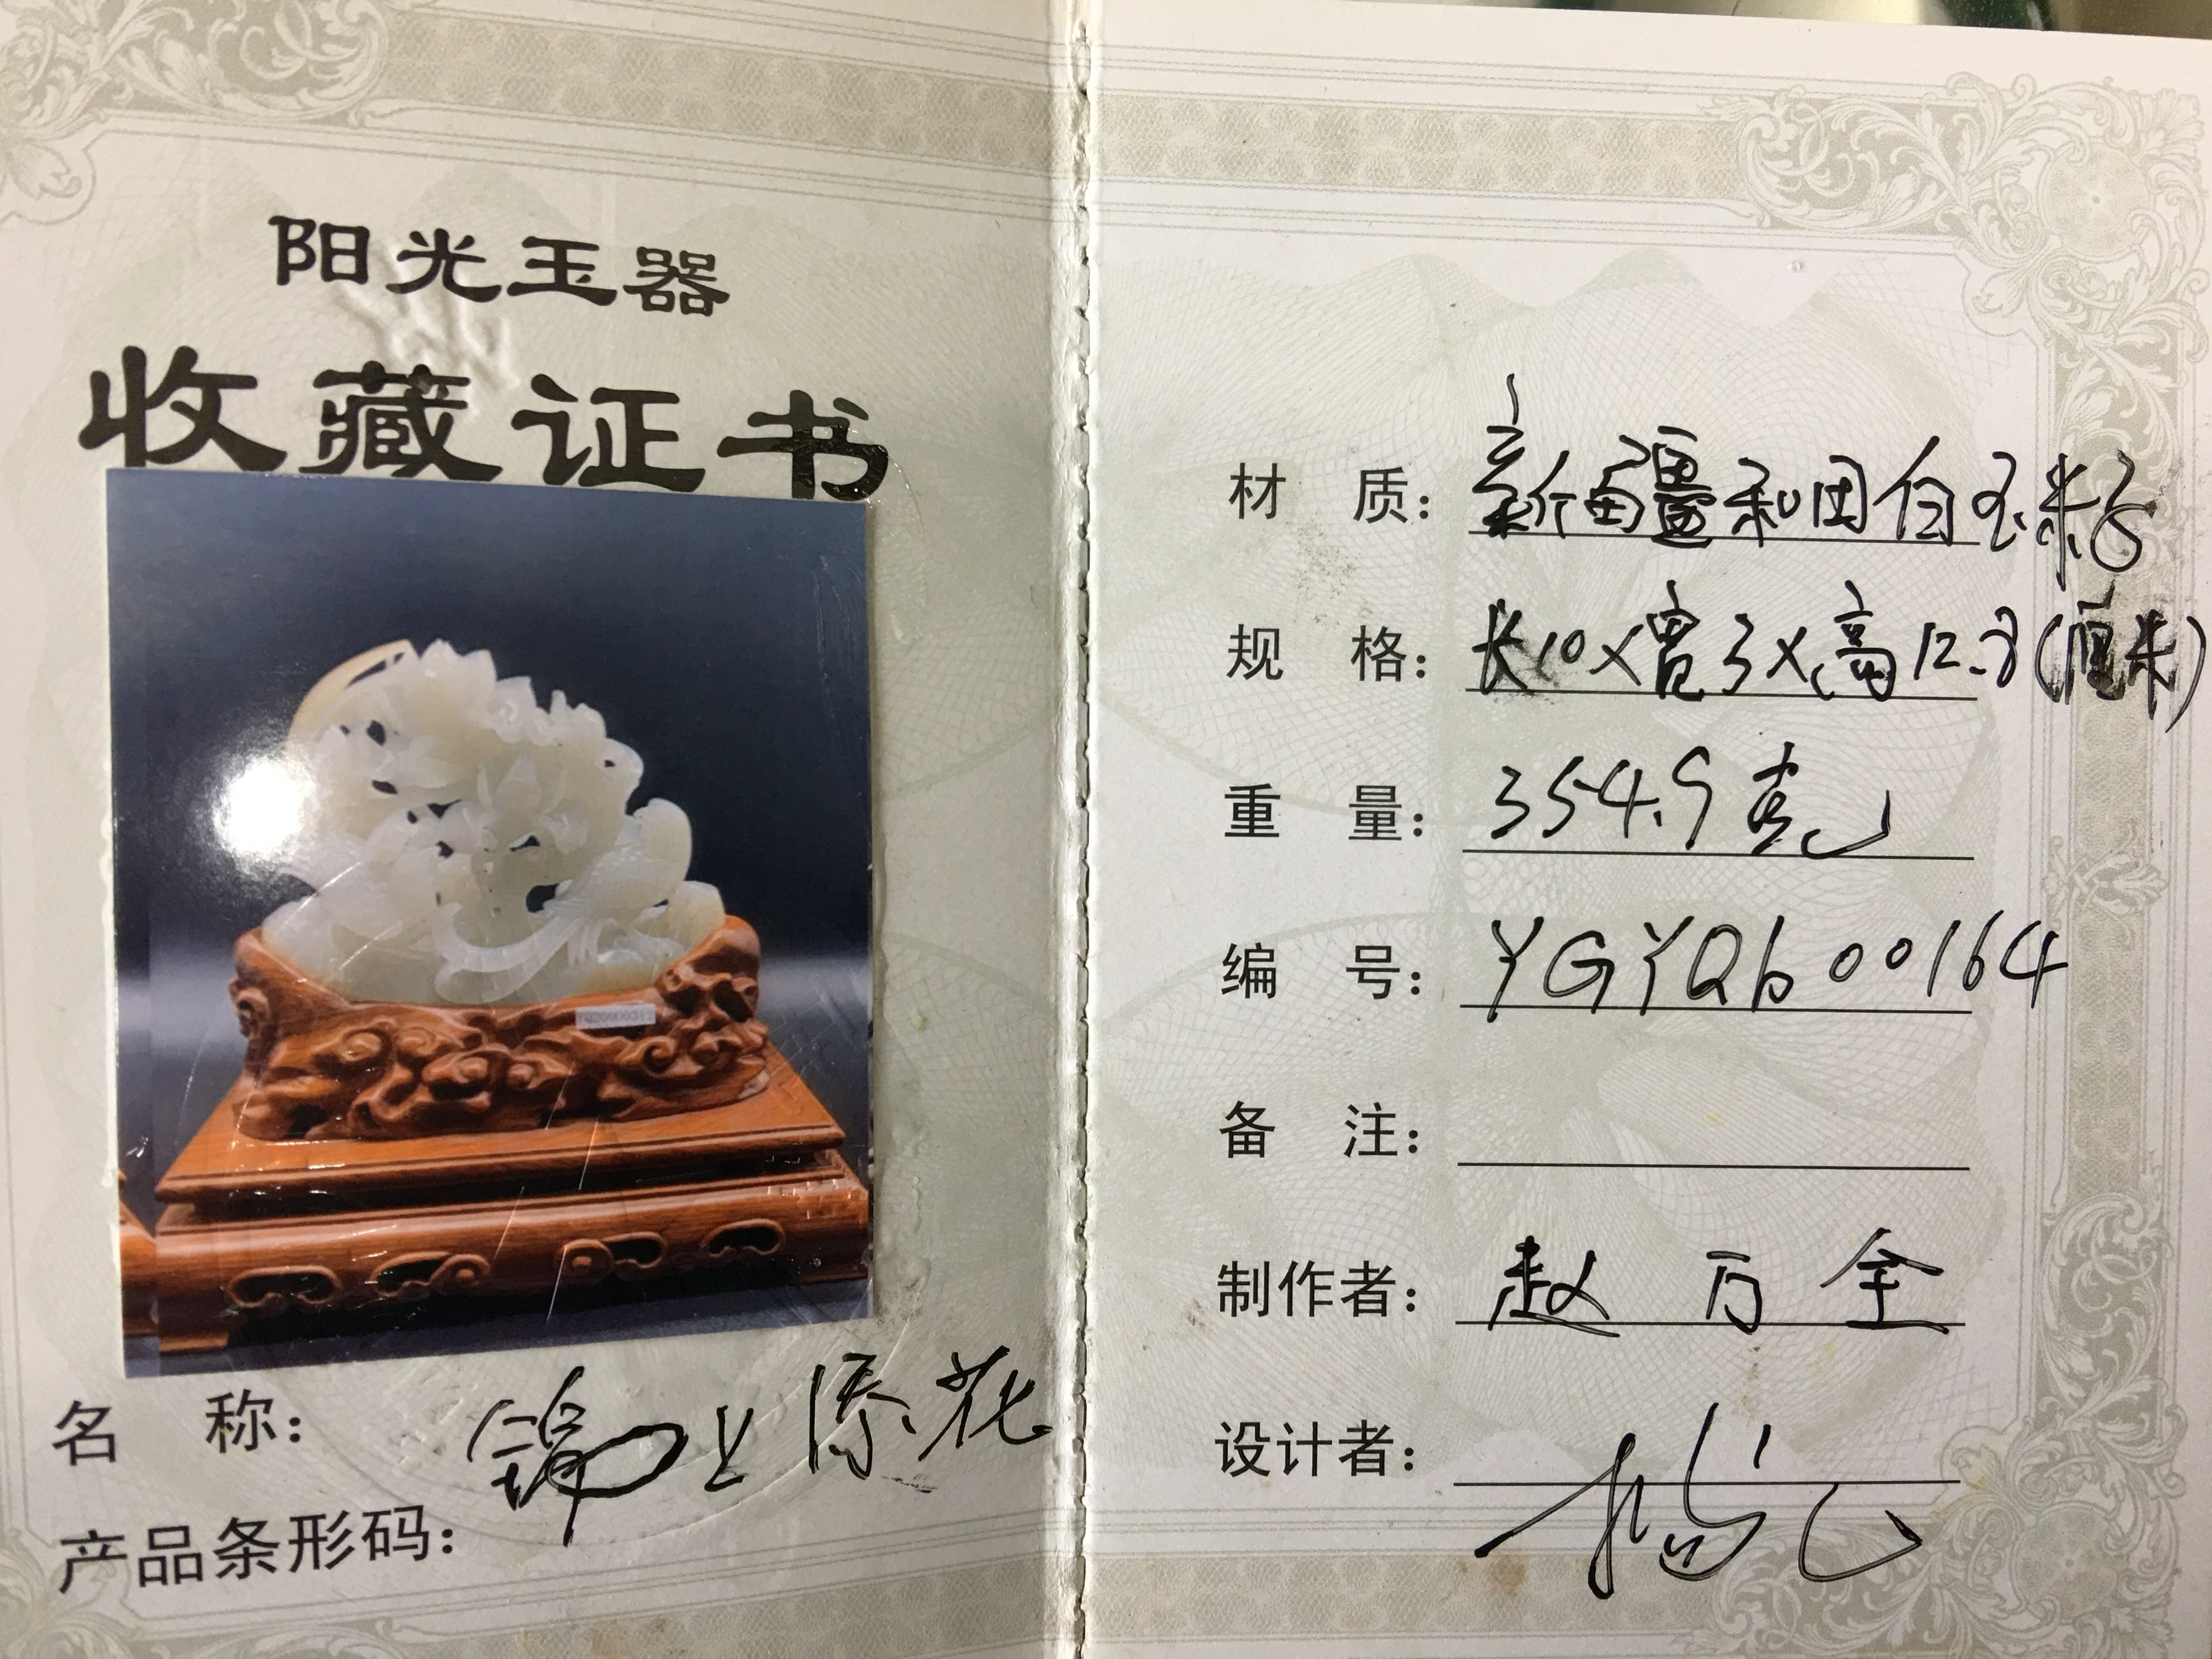 阳光玉器
收藏证书
名 称：锦上添花
产品条形码：
材 质：新疆和田白玉籽
规 格：长10×宽3×高12.8(厘米)
重 量：354.9克
编 号：YGYQb00164
备 注：
制作者：赵万全
设计者：